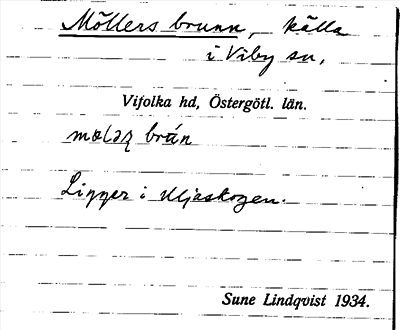 Möllers brunn, källa
i Viby sn,
Vifolka hd, Östergötl. län.
brán
Ligger i Uljaskogen.
Sune Lindqvist 1934.